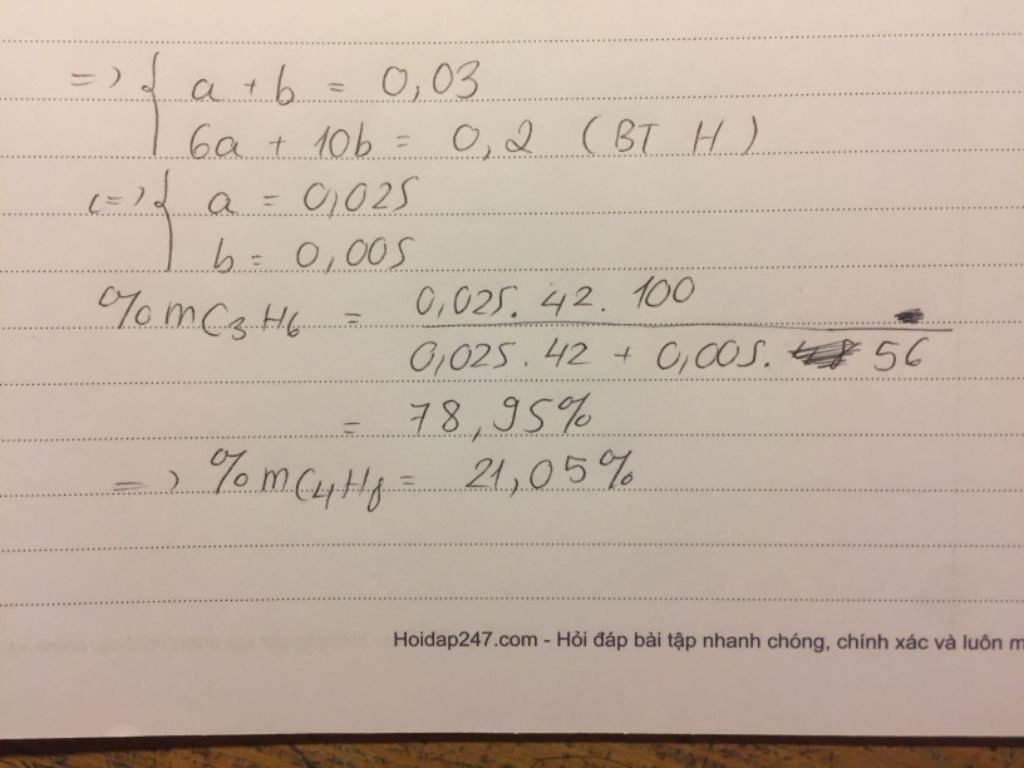 => { a + b = 0,03
6a + 10b = 0,2 (BT H)
<=> { a = 0,025
b = 0,005
%mC3H6 = 0,025. 42. 100
0,025. 42 + 0,005. 56
= 78,95%
=> %mC4H8 = 21,05%
Hoidap247.com - Hỏi đáp bài tập nhanh chóng, chính xác và luôn m